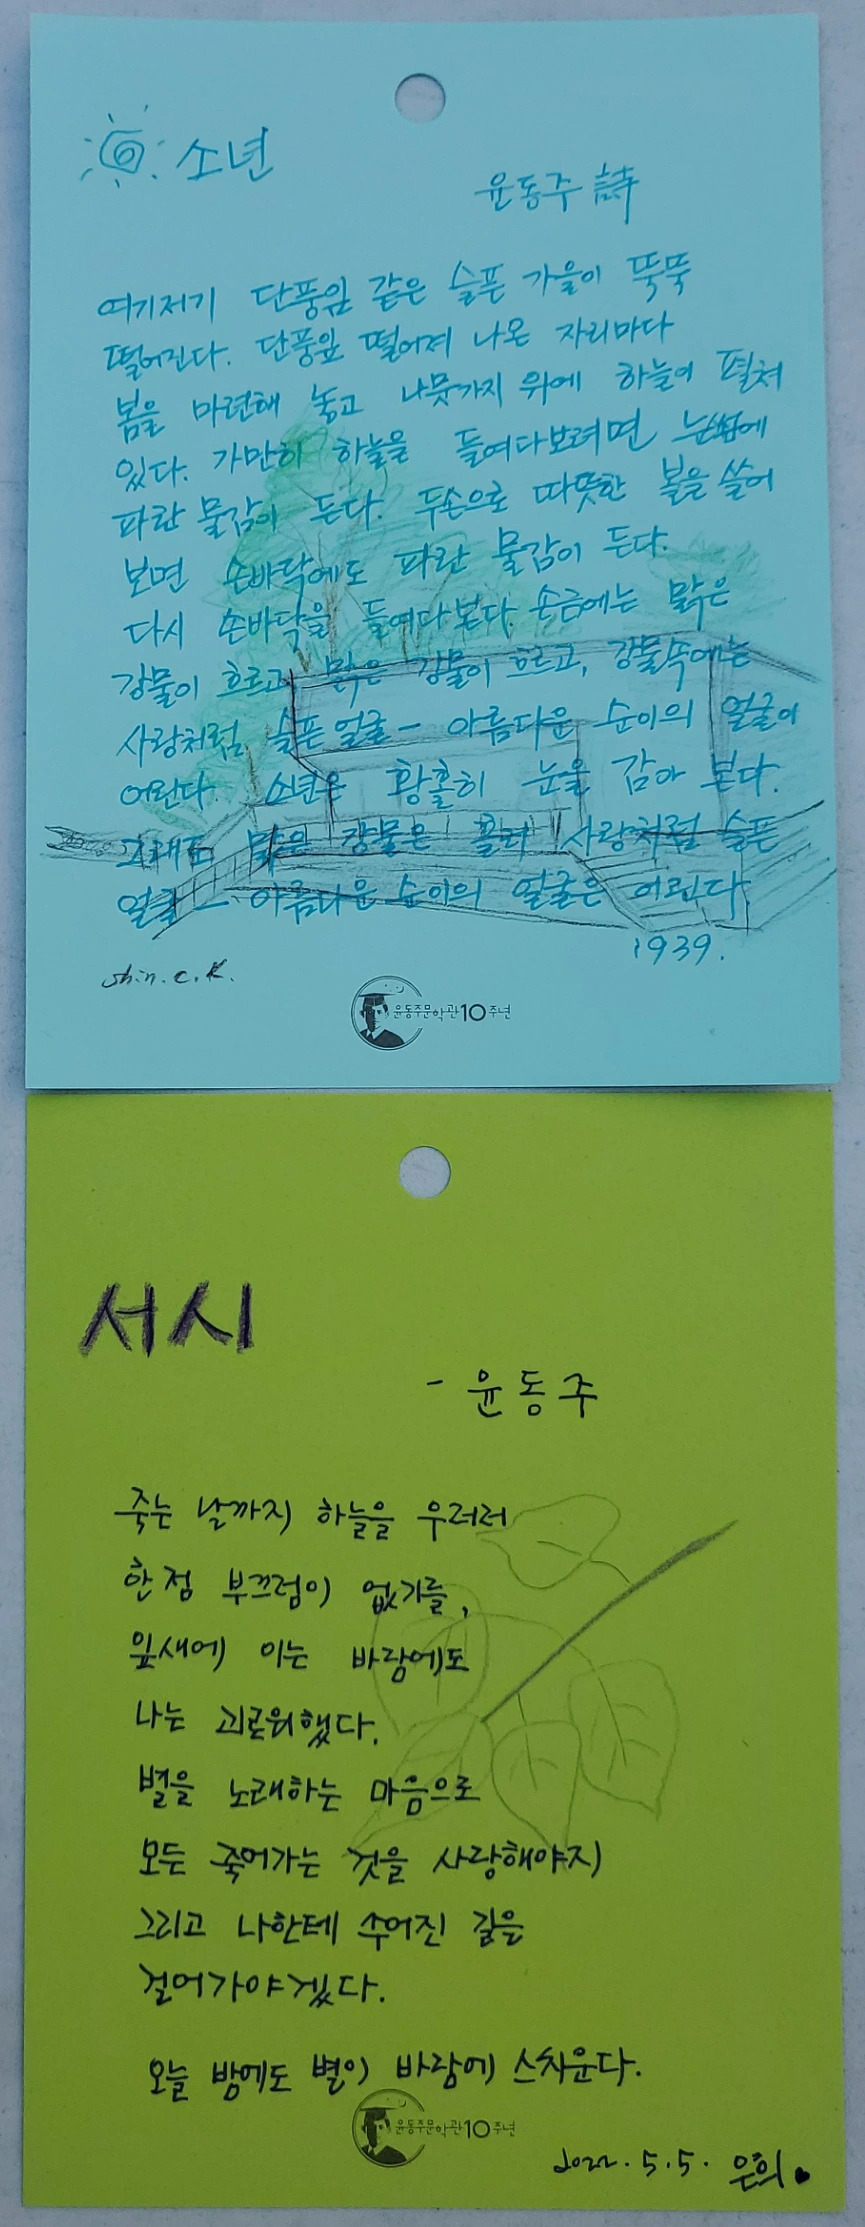 소년
윤동주 詩
여기저기 단풍잎 같은 슬픈 가을이 뚝뚝
떨어진다. 단풍잎 떨어져 나온 자리마다
봄을 마련해 놓고 나뭇가지 위에 하늘이 펼쳐
있다. 가만히 하늘을 들여다보려면 눈썹에
파란 물감이 든다. 두손으로 따뜻한 볼을 쓸어
보면 손바닥에도 파란 물감이 든다.
다시 손바닥을 들여다본다. 손금에는 맑은
강물이 흐르고, 맑은 강물이 흐르고, 강물속에는
사랑처럼 슬픈 얼굴 - 아름다운 순이의 얼굴이
어린다. 소년은 황홀히 눈을 감아 본다.
그래도 맑은 강물은 흘러 사랑처럼 슬픈
얼굴 - 아름다운 순이의 얼굴은 어린다.
1939.
shin.c.k.
윤동주문학관10주년
서시
- 윤동주
죽는 날까지 하늘을 우러러
한 점 부끄럼이 없기를,
잎새에 이는 바람에도
나는 괴로워했다.
별을 노래하는 마음으로
모든 죽어가는 것을 사랑해야지
그리고 나한테 주어진 길을
걸어가야겠다.
오늘 밤에도 별이 바람에 스치운다.
윤동주문학관10주년
2022. 5. 5. 은희